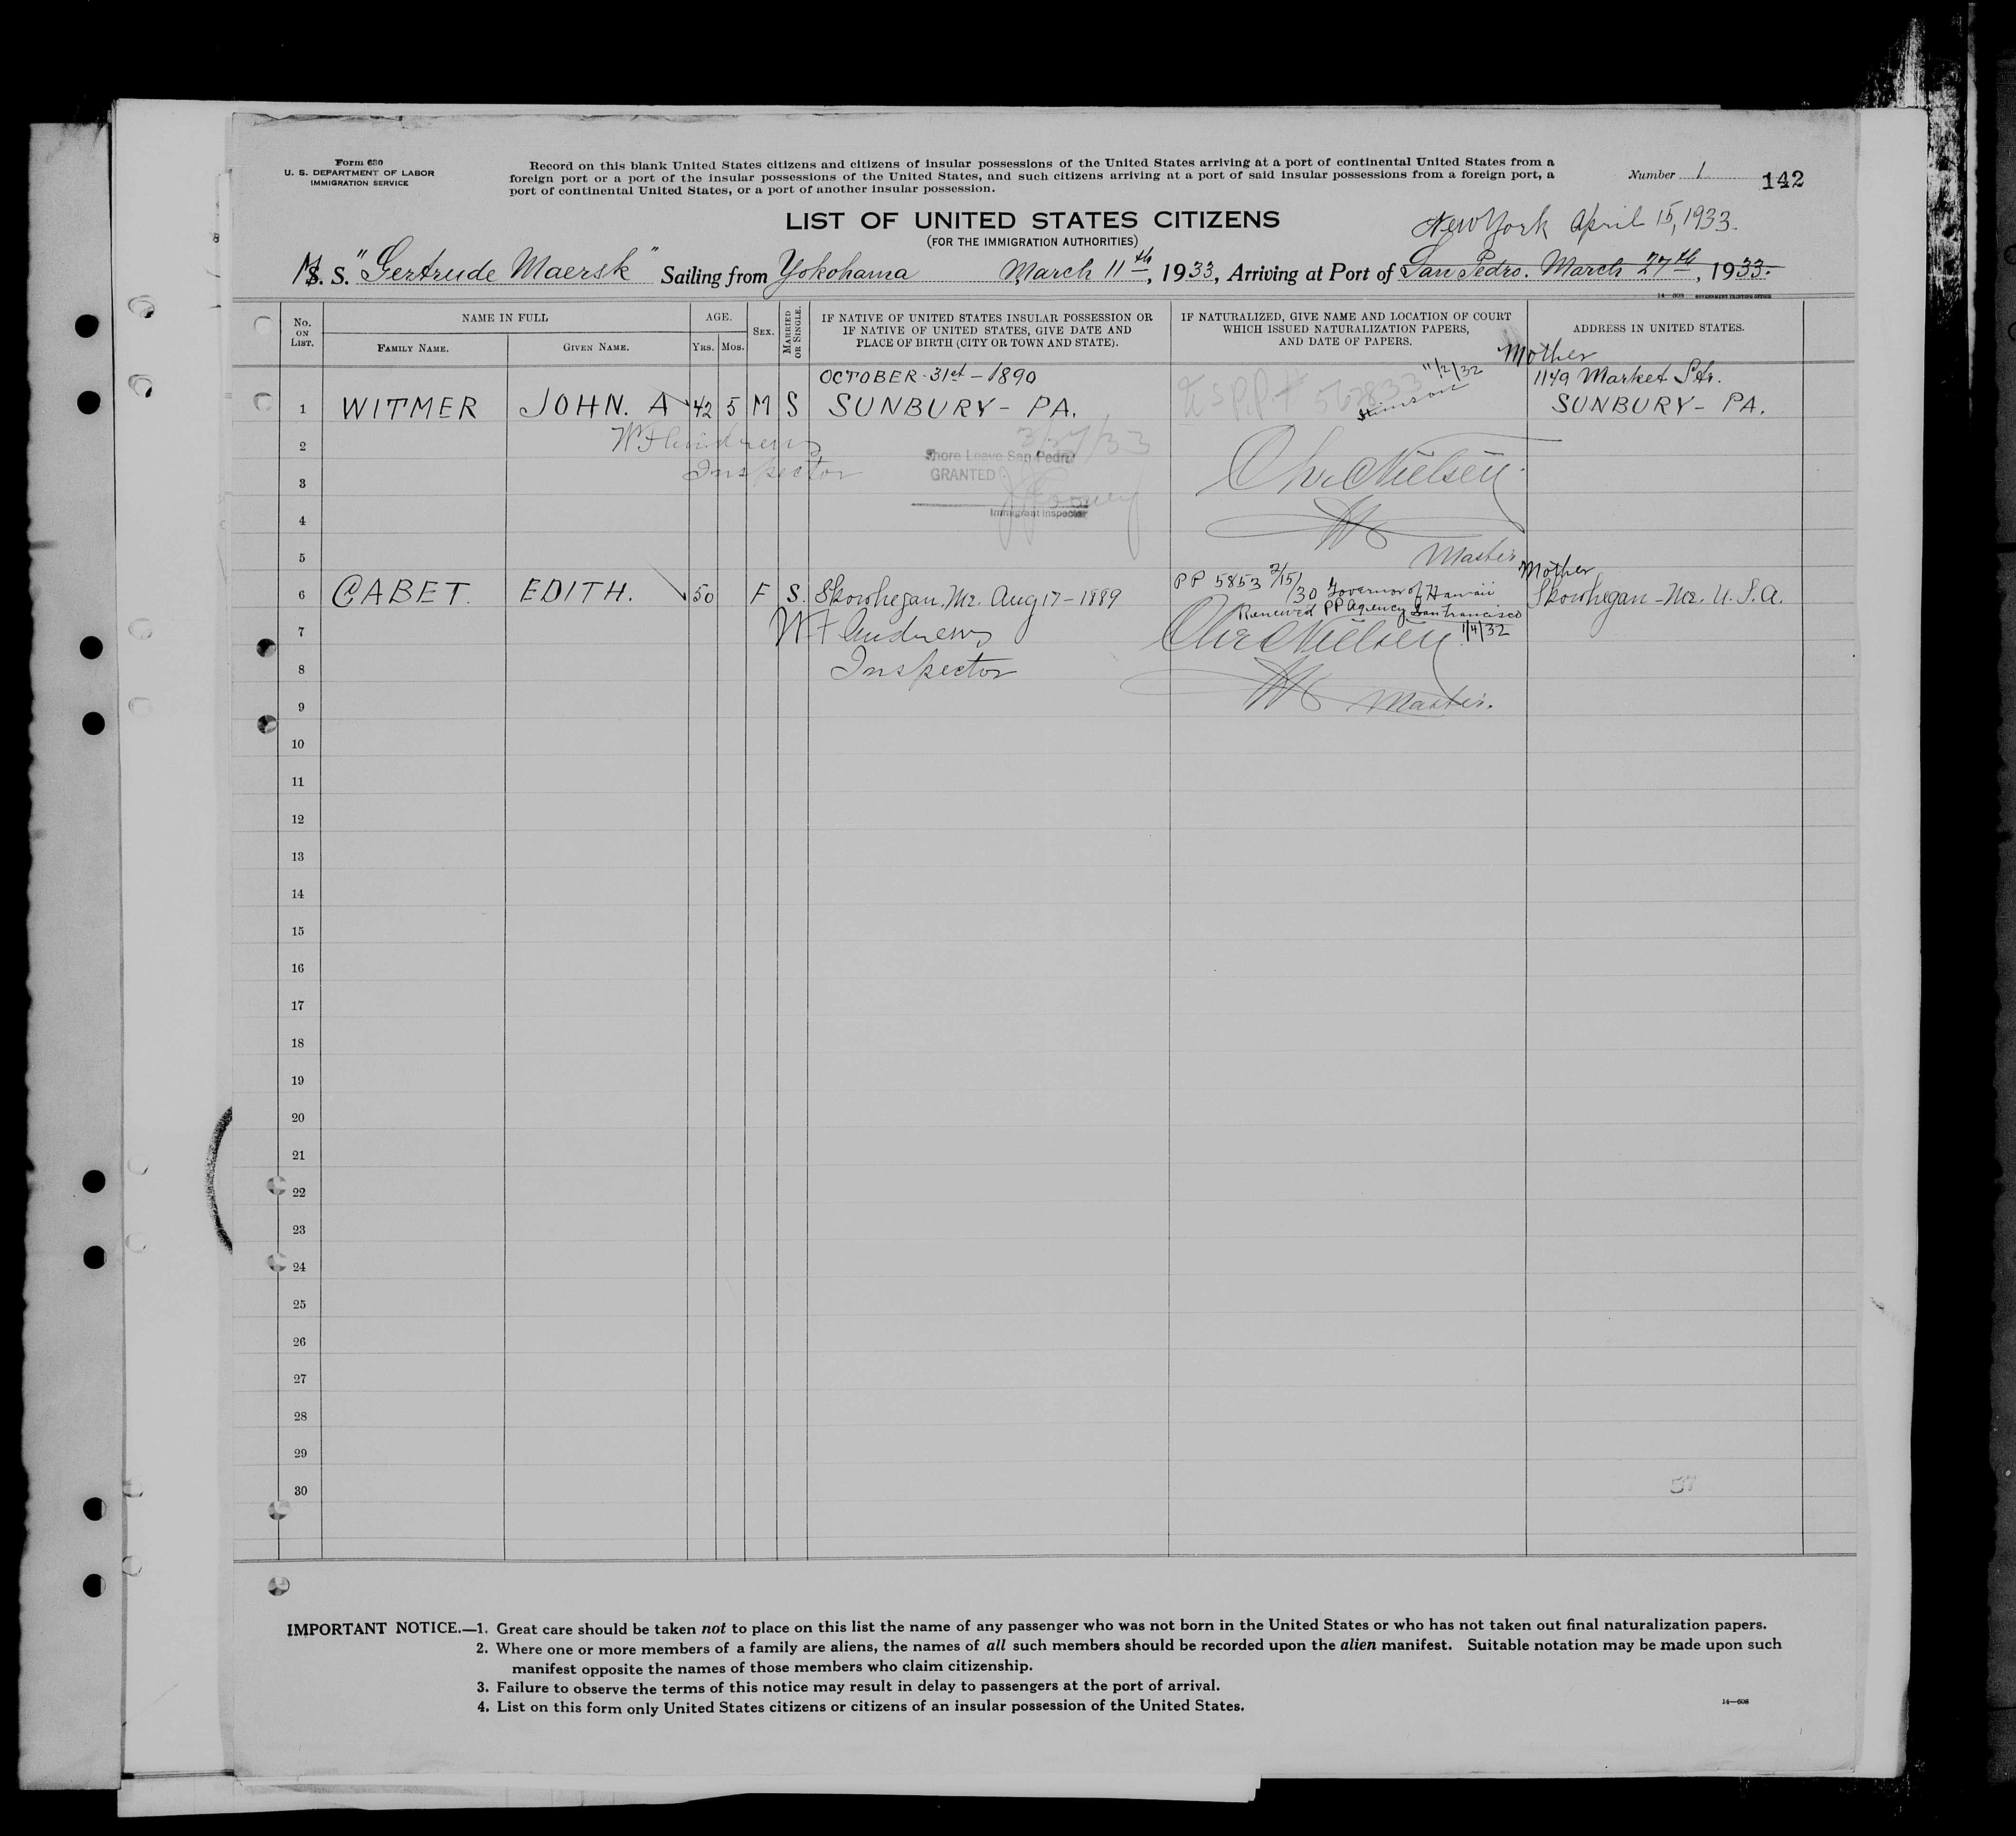 Form 630
U. S. DEPARTMENT OF LABOR
IMMIGRATION SERVICE
Record on this blank United States citizens and citizens of insular possessions of the United States arriving at a port of continental United States from a
foreign port or a port of the insular possessions of the United States, and such citizens arriving at a port of said insular possessions from a foreign port, a
port of continental United States, or a port of another insular possession.
Number 1
142
LIST OF UNITED STATES CITIZENS
(FOR THE IMMIGRATION AUTHORITIES)
New York April 15, 1933.
M. S. "Gertrude Maersk" Sailing from Yokohama March 11th, 1933, Arriving at Port of San Pedro. March 27th, 1933.
14—608 GOVERNMENT PRINTING OFFICE
No. ON LIST.
NAME IN FULL
FAMILY NAME.
GIVEN NAME.
AGE.
YRS.
MOS.
SEX.
MARRIED OR SINGLE.
IF NATIVE OF UNITED STATES INSULAR POSSESSION OR
IF NATIVE OF UNITED STATES, GIVE DATE AND
PLACE OF BIRTH (CITY OR TOWN AND STATE).
IF NATURALIZED, GIVE NAME AND LOCATION OF COURT
WHICH ISSUED NATURALIZATION PAPERS,
AND DATE OF PAPERS.
ADDRESS IN UNITED STATES.
Mother
OCTOBER-31st-1890
11/2/32
1149 Market Str.
1 WITMER JOHN. A 42 5 M S SUNBURY - PA. US P.P.# 562833 Stimson SUNBURY - PA.
2 W F Andrews 3/27/33
Inspector
Shore Leave San Pedro
GRANTED
Immigrant Inspector
3
Chr Nielsen
4
5
Master
Mother
6 CABET. EDITH. 50 F S. Skowhegan, Me. Aug 17-1889 PP 5853 2/15/30 Governor of Hawaii Skowhegan - Me. U.S.A.
Renewed PP Agency San Francisco
1/4/32
7 W F Andrews Chr Nielsen
8 Inspector
9 Master.
10
11
12
13
14
15
16
17
18
19
20
21
22
23
24
25
26
27
28
29
30
57
IMPORTANT NOTICE.—1. Great care should be taken not to place on this list the name of any passenger who was not born in the United States or who has not taken out final naturalization papers.
2. Where one or more members of a family are aliens, the names of all such members should be recorded upon the alien manifest. Suitable notation may be made upon such
manifest opposite the names of those members who claim citizenship.
3. Failure to observe the terms of this notice may result in delay to passengers at the port of arrival.
4. List on this form only United States citizens or citizens of an insular possession of the United States.
14—608